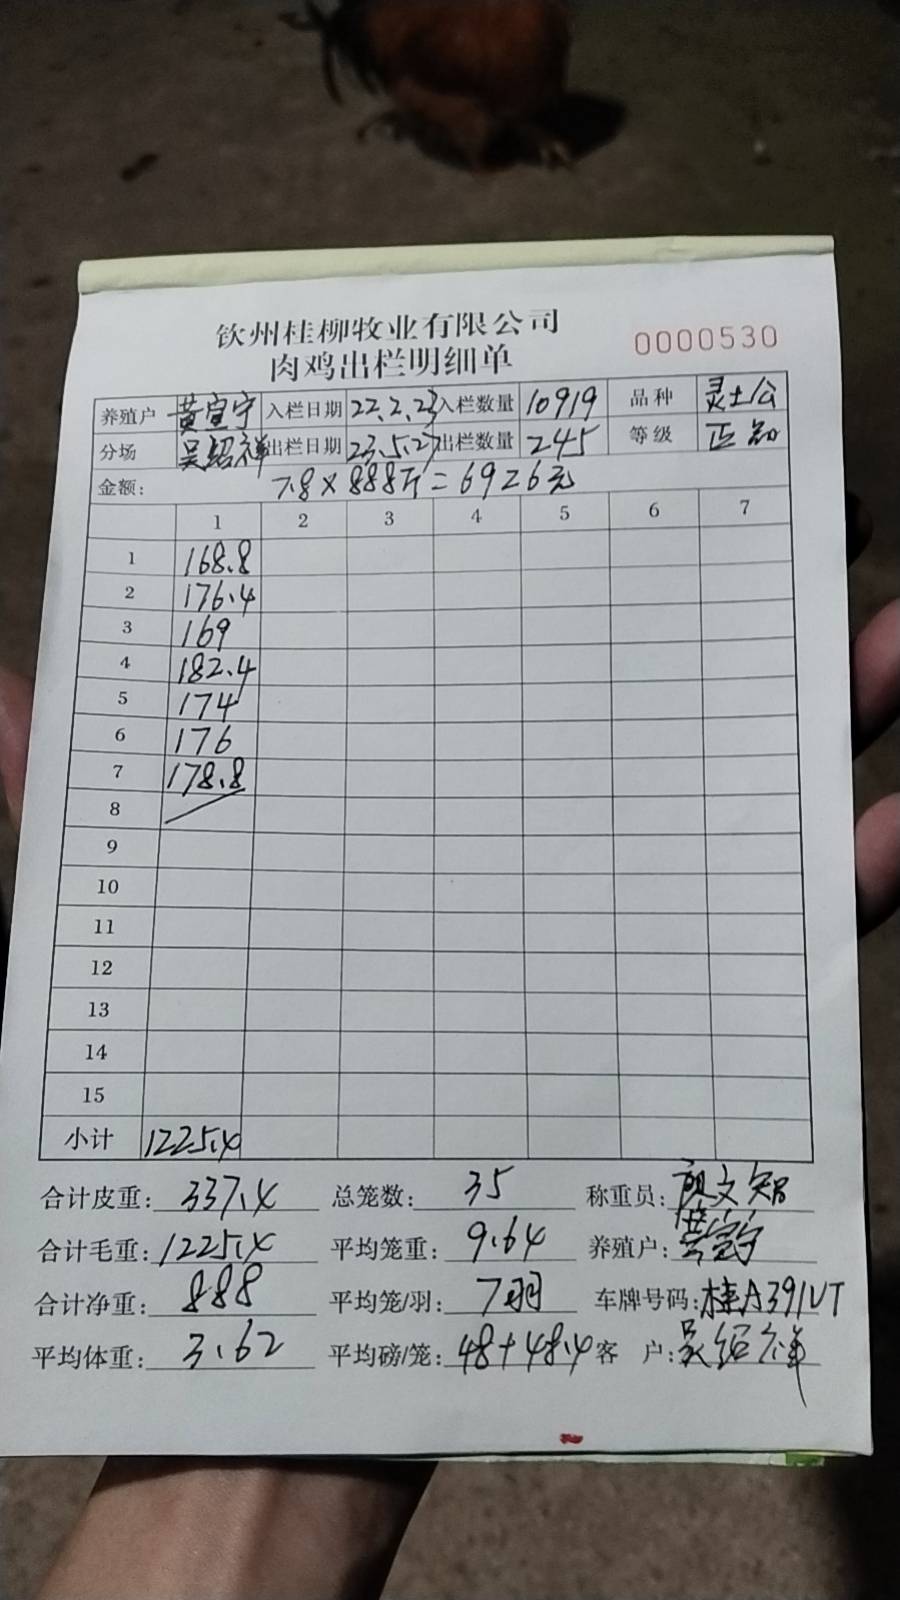 钦州桂柳牧业有限公司
肉鸡出栏明细单
0000530
养殖户 黄宣宁 入栏日期 22.2.23 入栏数量 10919 品种 灵土公
分场 吴绍祥 出栏日期 23.5.27 出栏数量 245 等级 正
金额: 7.8×888斤=6926元
1 2 3 4 5 6 7
1 168.8
2 176.4
3 169
4 182.4
5 174
6 176
7 178.8
8
9
10
11
12
13
14
15
小计 1225.4
合计皮重: 337.4 总笼数: 35 称重员: 颜文智
合计毛重: 1225.4 平均笼重: 9.64 养殖户: 黄宣宁
合计净重: 888 平均笼/羽: 7羽 车牌号码: 桂A391VT
平均体重: 3.62 平均磅/笼: 48+48.4 客 户: 吴绍祥